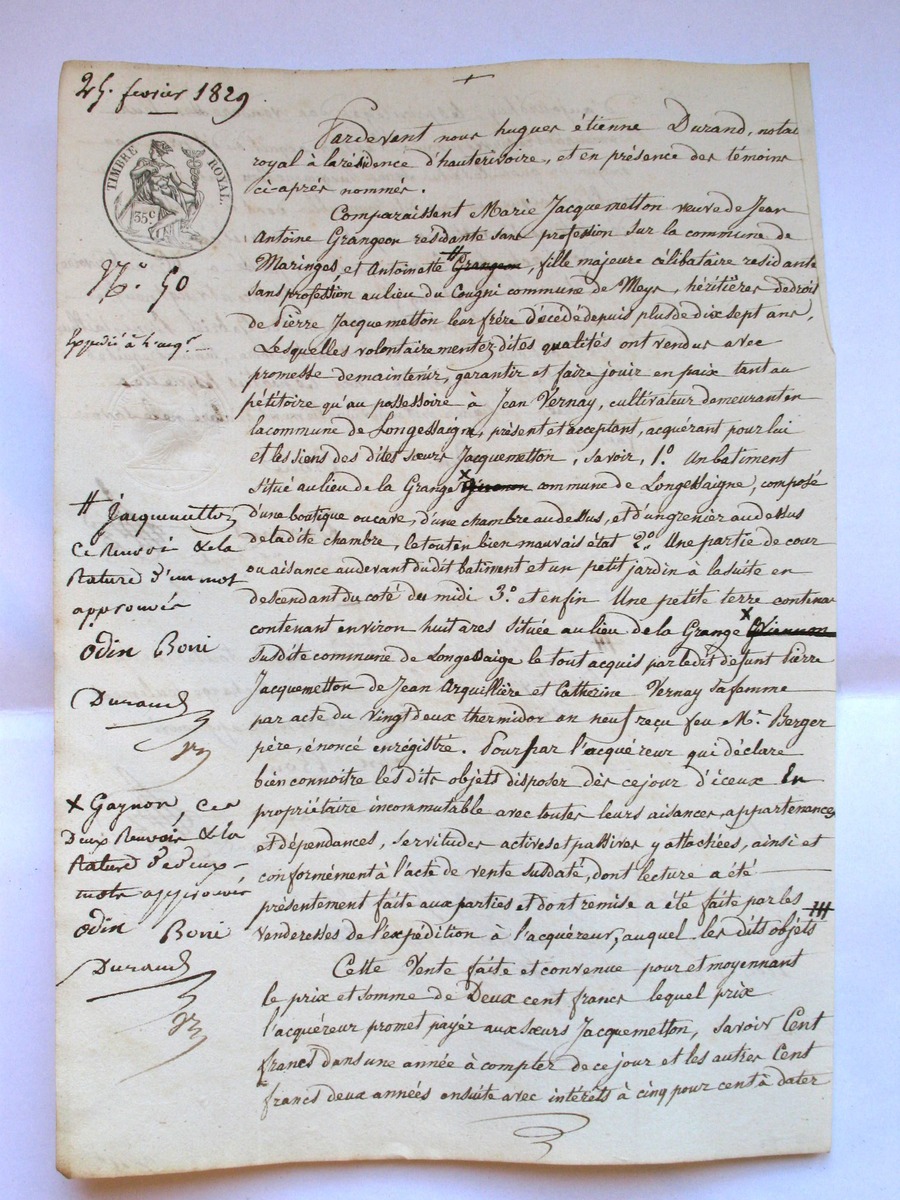 25. fevrier 1829
TIMBRE ROYAL.
35 c
N.° 50
Expédié à l'acq.r
Pardevant nous hugues étienne Durand, notai
royal à la résidence d'hauterivoire, et en présence des témoins
ci-après nommés.
Comparaissent Marie Jacquemetton veuve de Jean
Antoine Grangeon résidante sans profession sur la commune de
Maringes, et Antoinette # Grangeon, fille majeure célibataire residante
sans profession au lieu du Cougni commune de Meys, héritières de droit
de Pierre Jacquemetton leur frère décédé depuis plus de dix sept ans,
Lesquelles volontairement ez dites qualités ont vendus avec
promesse de maintenir, garantir et faire jouir en paix tant au
pétitoire qu'au possessoire à Jean Vernay, cultivateur demeurant en
la commune de Longessaigne, présent et acceptant, acquérant pour lui
et les siens des dites sœurs Jacquemetton, savoir, 1.° Un batiment
situé au lieu de la Grange X commune de Longessaigne, composé
d'une boutique ou cave, d'une chambre au dessus, et d'un grenier au dessus
de la dite chambre, le tout en bien mauvais état 2.° Une partie de cour
ou aisance au devant du dit batiment et un petit jardin à la suite en
descendant du coté du midi 3.° et enfin Une petite terre contenan
contenant environ huit ares située au lieu de la Grange X
susdite commune de Longessaige le tout acquis par le dit défunt Pierre
Jacquemetton de Jean Arquillière et Catherine Vernay sa femme
par acte du Vingt deux thermidor an neuf reçu feu M.e Berger
père, énoncé enrégistré. Pour par l'acquéreur qui déclare
bien connoitre les dits objets disposer dès ce jour d'iceux En
propriétaire incommutable avec toutes leurs aisances, appartenances
et dépendances, servitudes actives et passives y attachées, ainsi et
conformément à l'acte de vente susdaté, dont lecture a été
présentement faite aux parties et dont remise a été faite par les
venderesses de l'expédition à l'acquéreur, auquel les dits objets
Cette Vente faite et convenue pour et moyennant
le prix et somme de Deux cent francs lequel prix
l'acquéreur promet payer aux sœurs Jacquemetton, savoir Cent
francs dans une année à compter de ce jour et les autres Cent
francs deux années ensuite avec intérêts à cinq pour cent à dater
# Jacquemetton
Ce renvoi & la
Rature d'un mot
approuvés
Odin Boni
Durand
X Gagnon, ces
Deux Renvois & la
Rature de deux
mots approuvés
Odin Boni
Durand